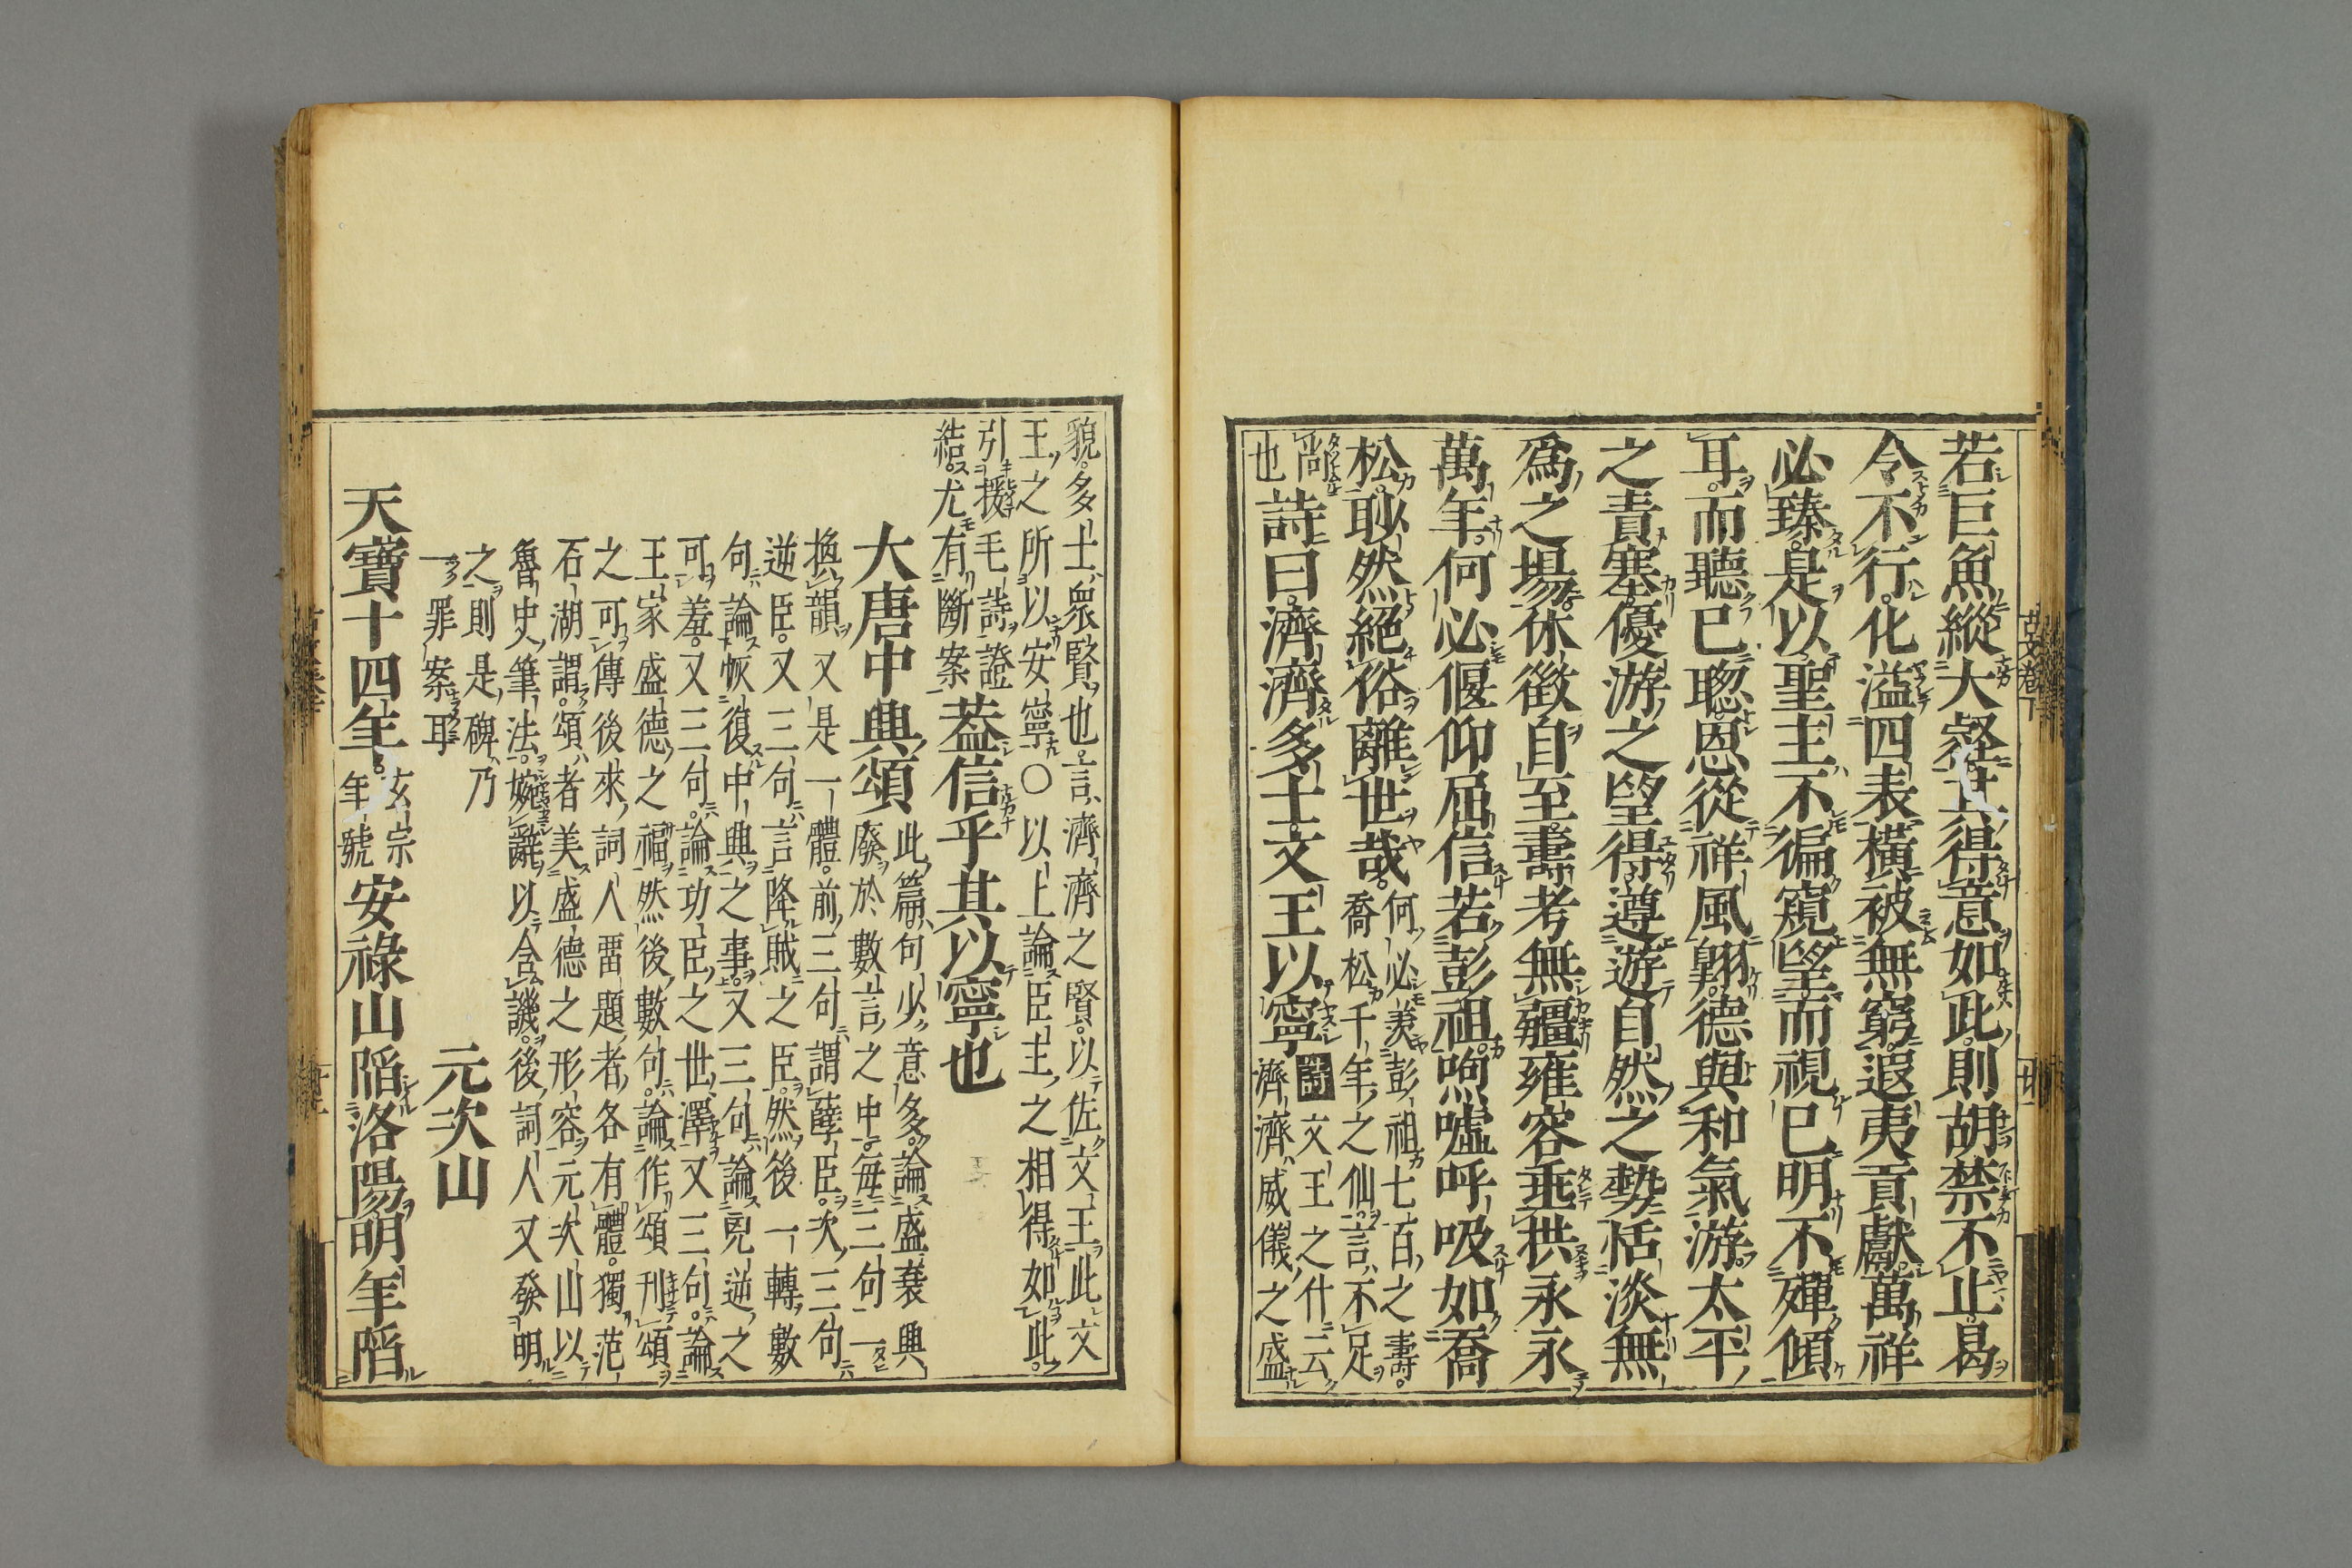 若巨魚縱大壑其得意如此則胡禁不止曷
令不行化溢四表橫被無窮遐夷貢獻萬祥
必臻是以聖主不徧窺望而視已明不殫傾
耳而聽已聰恩從祥風翱德與和氣游太平
之責塞優游之望得遵遊自然之勢恬淡無
爲之場休徵自至壽考無疆雍容垂拱永永
萬年何必偃仰屈信若彭祖呴噓呼吸如喬
松眇然絕俗離世哉何必羨彭祖七百之壽
喬松千年之仙言不足
尚
也
詩曰濟濟多士文王以寧
文王之什云
濟濟威儀之盛
貌多士衆賢也言濟濟之賢以佐文王此文
王之所以安寧〇以上論臣主之相得如此
引援毛詩證
結尤有斷案
蓋信乎其以寧也
大唐中興頌
此篇句少意多論盛衰興
廢於數言之中每三句一
換韻又是一體前三句謂孽臣次三句
逆臣又三句言降賊之臣然後一轉數
句論恢復中興之事又三句論兇逆之
可羞又三句論功臣之世澤又三句論
王家盛德之福然後數句論作頌刊頌
之可傳後來詞人畱題者各有體獨范
石湖謂頌者美盛德之形容元次山以
魯史筆法婉辭以含譏後詞人又發明
之則是碑乃
一罪案耳
元次山
天寶十四年
玄宗
年號
安祿山陷洛陽明年陷
古文卷下
廿